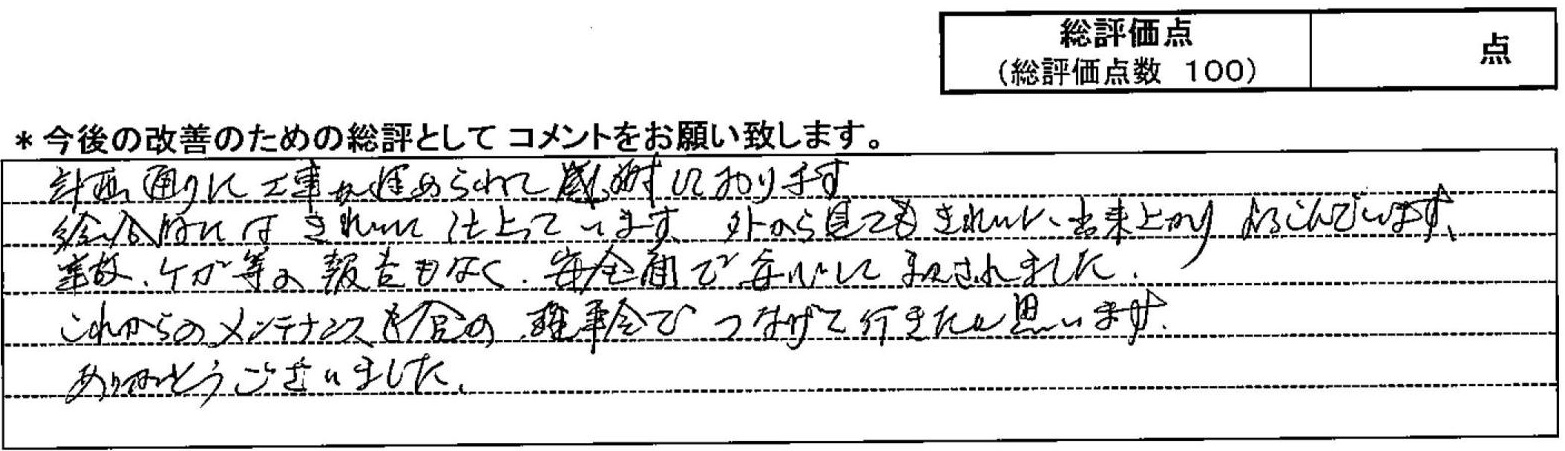 総評価点
(総評価点数 100)
点
*今後の改善のための総評として コメントをお願い致します。
計画通りに工事が進められて感謝しております
総合的には きれいに仕上っています、外から見てもきれいに、出来上がり よろこんでいます、
事故、ケガ等の報告もなく、安全面で安心して まかされました。
これからのメンテナンスも 理事会で つなげて行きたいと思います。
ありがとうございました。